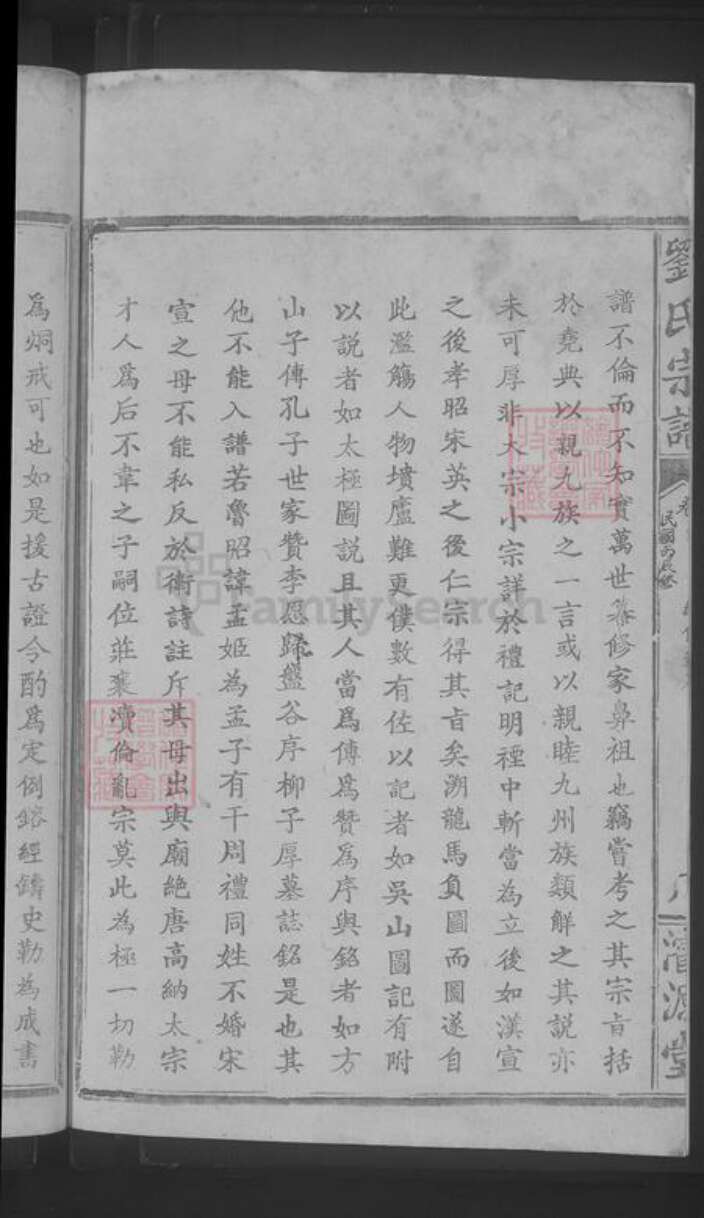 劉氏宗譜
民國丙辰修
八
濬源堂
譜不倫而不知實萬世纂修家鼻祖也竊嘗考之其宗旨括
於堯典以親九族之一言或以親睦九州族類解之其說亦
未可厚非大宗小宗詳於禮記明禋中斬當為立後如漢宣
之後孝昭宋英之後仁宗得其旨矣溯龍馬負圖而圖遂自
此濫觴人物墳廬難更僕數有佐以記者如吳山圖記有附
以說者如太極圖說且其人當爲傳爲贊爲序與銘者如方
山子傳孔子世家贊李愿歸盤谷序柳子厚墓誌銘是也其
他不能入譜若魯昭諱孟姬為孟子有干周禮同姓不婚宋
宣之母不能私反於衛詩註斥其母出與廟絶唐高納太宗
才人爲后不韋之子嗣位莊襄瀆倫亂宗莫此為極一切勒
爲炯戒可也如是援古證今酌爲定例鎔經鑄史勒為成書
FamilySearch